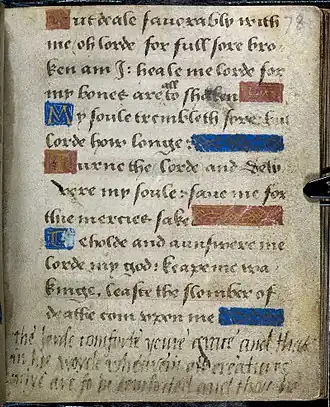 78
But deale faverably with
me, oh lorde for full sore bro-
ken am I: heale me lorde for
all
my bones are to shaken
My soule trembleth sore: but
lorde how longe:
Turne the lorde and dely
vere my soule: save me for
thie mercies sake
Beholde and aunswere me
lorde my god: keape me wa-
kinge, leaste the slomber of
deathe com vpon me
the lorde comforte youre grace and that
in his worde wherein all creatures
are to be comforted and